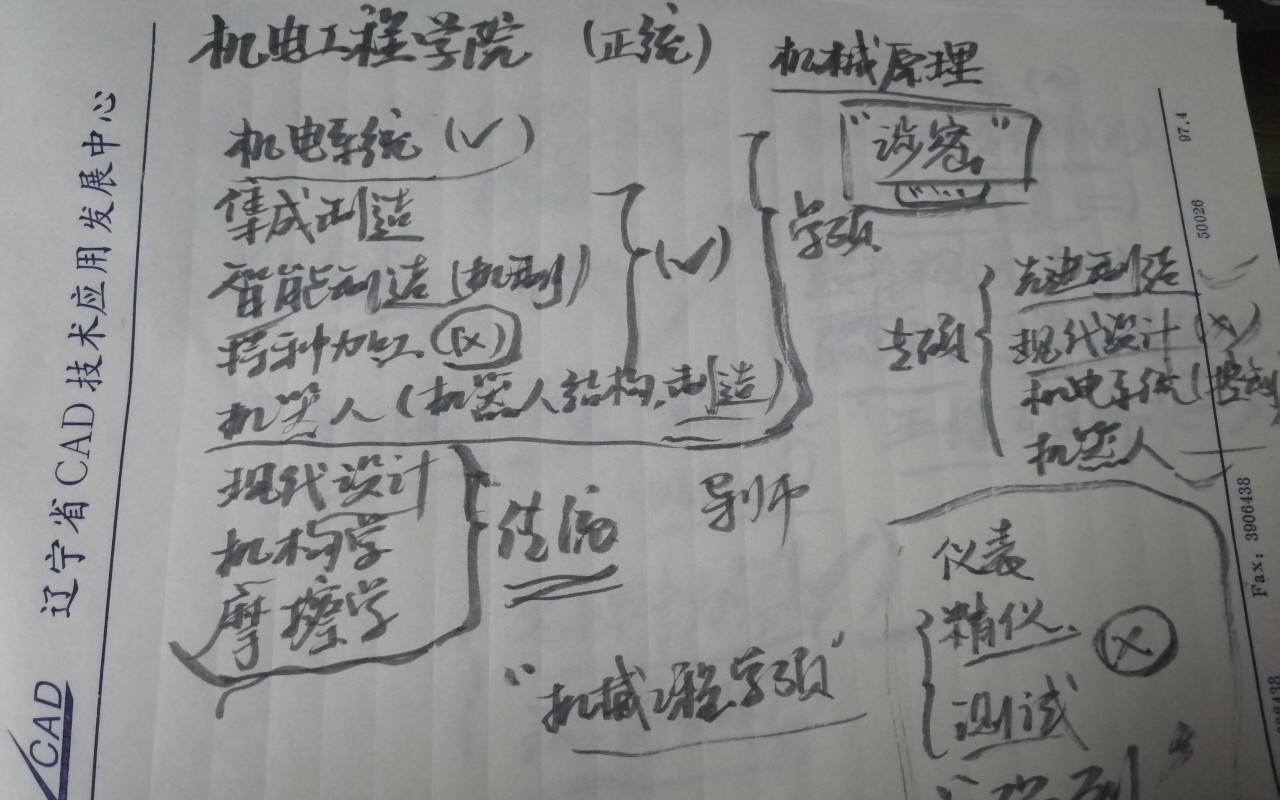 机电工程学院 (正统) 机械原理
机电系统 (√)
集成制造
智能制造 (机制)
(√)
特种加工 (×)
机器人 (机器人结构、制造)
学硕
专硕
先进制造
现代设计 (×)
机电系统 (控制
机器人
现代设计
机构学
摩擦学
导师
"机械工程学硕"
仪表
精仪、
(×)
测试
辽宁省CAD技术应用发展中心
CAD
97.4
50026
Fax: 3906438